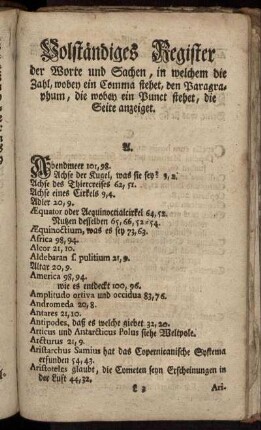 Volständiges Register
der Worte und Sachen, in welchem die
Zahl, wobey ein Comma stehet, den Paragra-
phum, die wobey ein Punct stehet, die
Seite anzeiget.
A.
Abendmeer 101,98.
Achse der Kugel, was sie sey?
Achse des Thiercreises 62, 51.
Achse eines Cirkels 9,4.
Adler 20,9.
Æquator oder Aequinoctialcirkel 64,52.
Nutzen desselben 65, 66, 52.54.
Æquinoctium, was es sey 73,63.
Africa 98,94.
Alcor 21,10.
Aldebaran s. pulitium 21,9.
Altar 20,9.
America 98,94.
wie es entdeckt 100, 96.
Amplitudo ortiva und occidua 83,76.
Andromeda 20,8.
Antares 21,10.
Antipodes, daß es welche giebet 32, 20.
Arcticus und Antarcticus Polus siehe Weltpole.
Arcturus 21,9.
Aristarchus Samius hat das Copernicanische Systema
erfunden 54,43.
Aristoteles glaubt, die Cometen seyn Erscheinungen in
der Luft 44,32.
Ari-